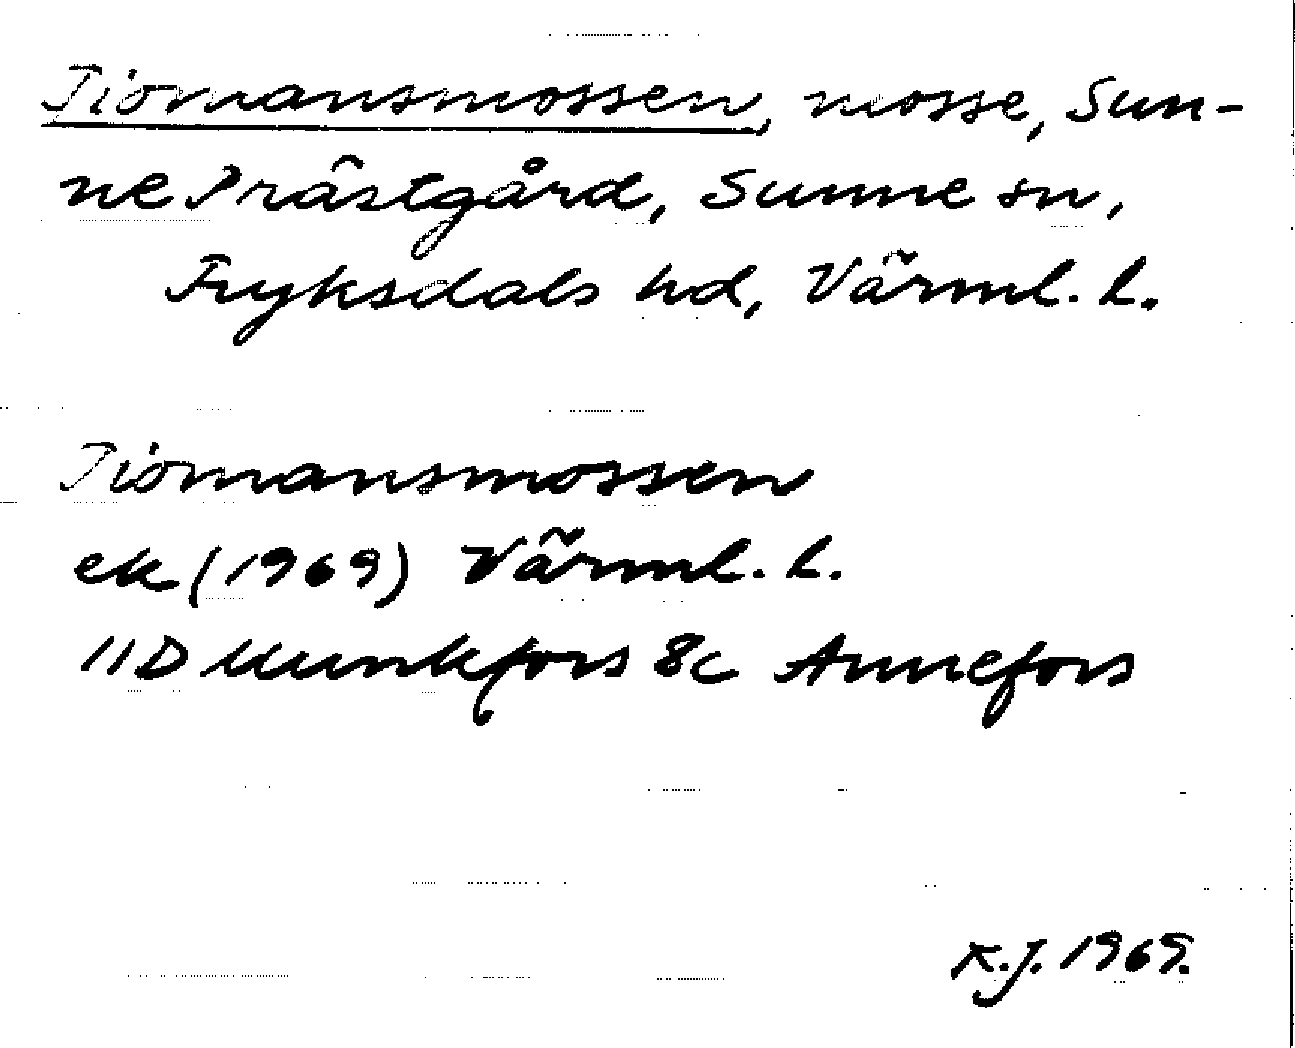 Tiomansmossen, mosse, Sun-
ne Prästgård, Sunne sn,
Fryksdals hd, Värml. l.
Tiomansmossen
ek (1969) Värml. l.
11D Munkfors 8c Annefors
K.J. 1969.